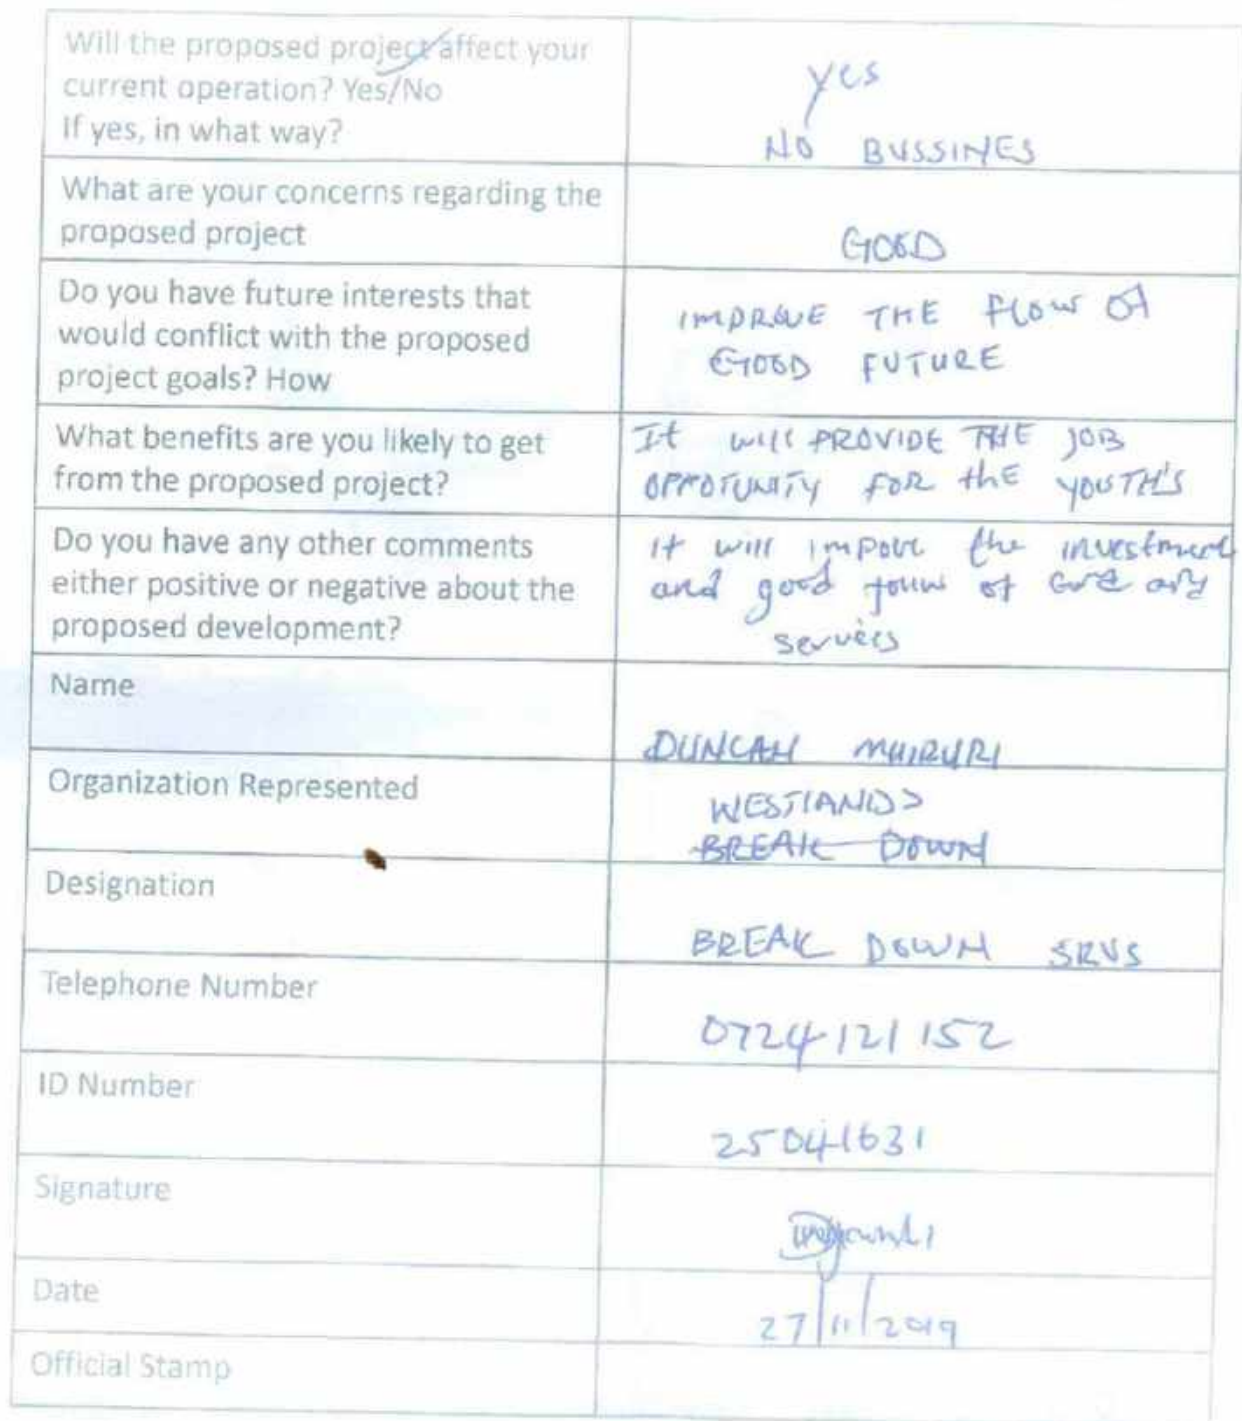 Will the proposed project affect your
current operation? Yes/No
If yes, in what way?
yes
NO BUSSINES
What are your concerns regarding the
proposed project
GOOD
Do you have future interests that
would conflict with the proposed
project goals? How
IMPROVE THE FLOW OF
GOOD FUTURE
What benefits are you likely to get
from the proposed project?
It will PROVIDE THE JOB
OPPOTUNITY FOR thE YOUTH'S
Do you have any other comments
either positive or negative about the
proposed development?
It will impove the investment
and good of and
Name
DUNCAN MUIRURI
Organization Represented
WESTLANDS
BREAK DOWN
Designation
BREAK DOWN SRVS
Telephone Number
0724 121 152
ID Number
25041631
Signature
Date
27/11/2019
Official Stamp